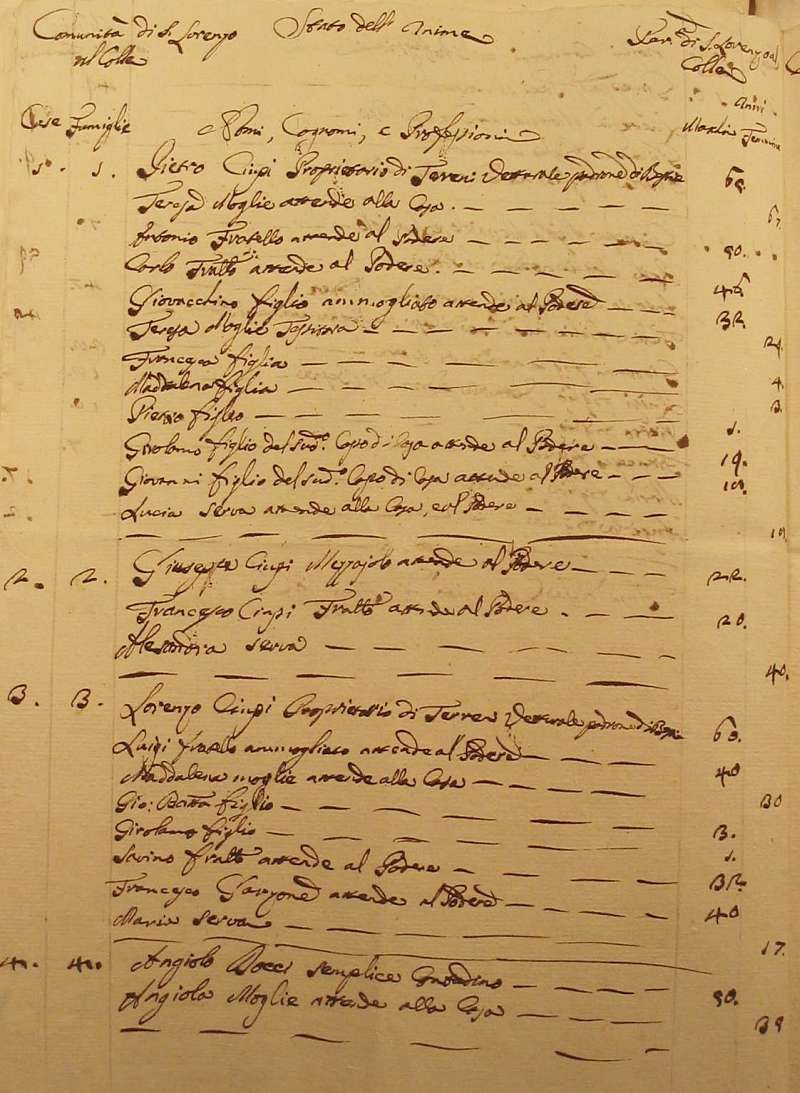 Comunità di S. Lorenzo Stato dell' Anime Par.a di S. Lorenzo al
nel Colle Colle
Anni
Case Famiglie Nomi, Cognomi, e Professioni Maschi Femmine
1. 1. Pietro Ciapi Proprietario di Terreni Vetturale padrone di Bestie
Teresa Moglie attende alla Casa.
Antonio Fratello attende al Podere
Carlo Fratto attende al Podere.
Giovacchino figlio ammogliato attende al Podere
Teresa Moglie Tessitora 32.
Francesca figlia 24.
Maddalena figlia 4.
Pietro figlio 3.
Girolamo figlio del sud.o Capo di Casa attende al Podere 1.
Giovanni figlio del sud.o Capo di Casa attende al Podere 19.
Lucia serva attende alla Casa, e al Podere
2. 2. Giuseppe Ciapi Mezzajolo attende al Podere 22.
Francesco Ciapi Fratto attende al Podere 20.
Alesandra serva
40.
3. 3. Lorenzo Ciapi Proprietario di Terreni Vetturale padrone di Bestie 60.
Luigi fratello ammogliato attende al Podere 40
Maddalena moglie attende alla Casa 30
Gio: Batta figlio
Girolamo figlio 3.
Savino fratto attende al Podere 1.
Francesco Garzone attende al Podere 32.
Maria serva 40
17.
4. 4. Angiolo Bocci semplice Contadino
Angiola Moglie attende alla Casa